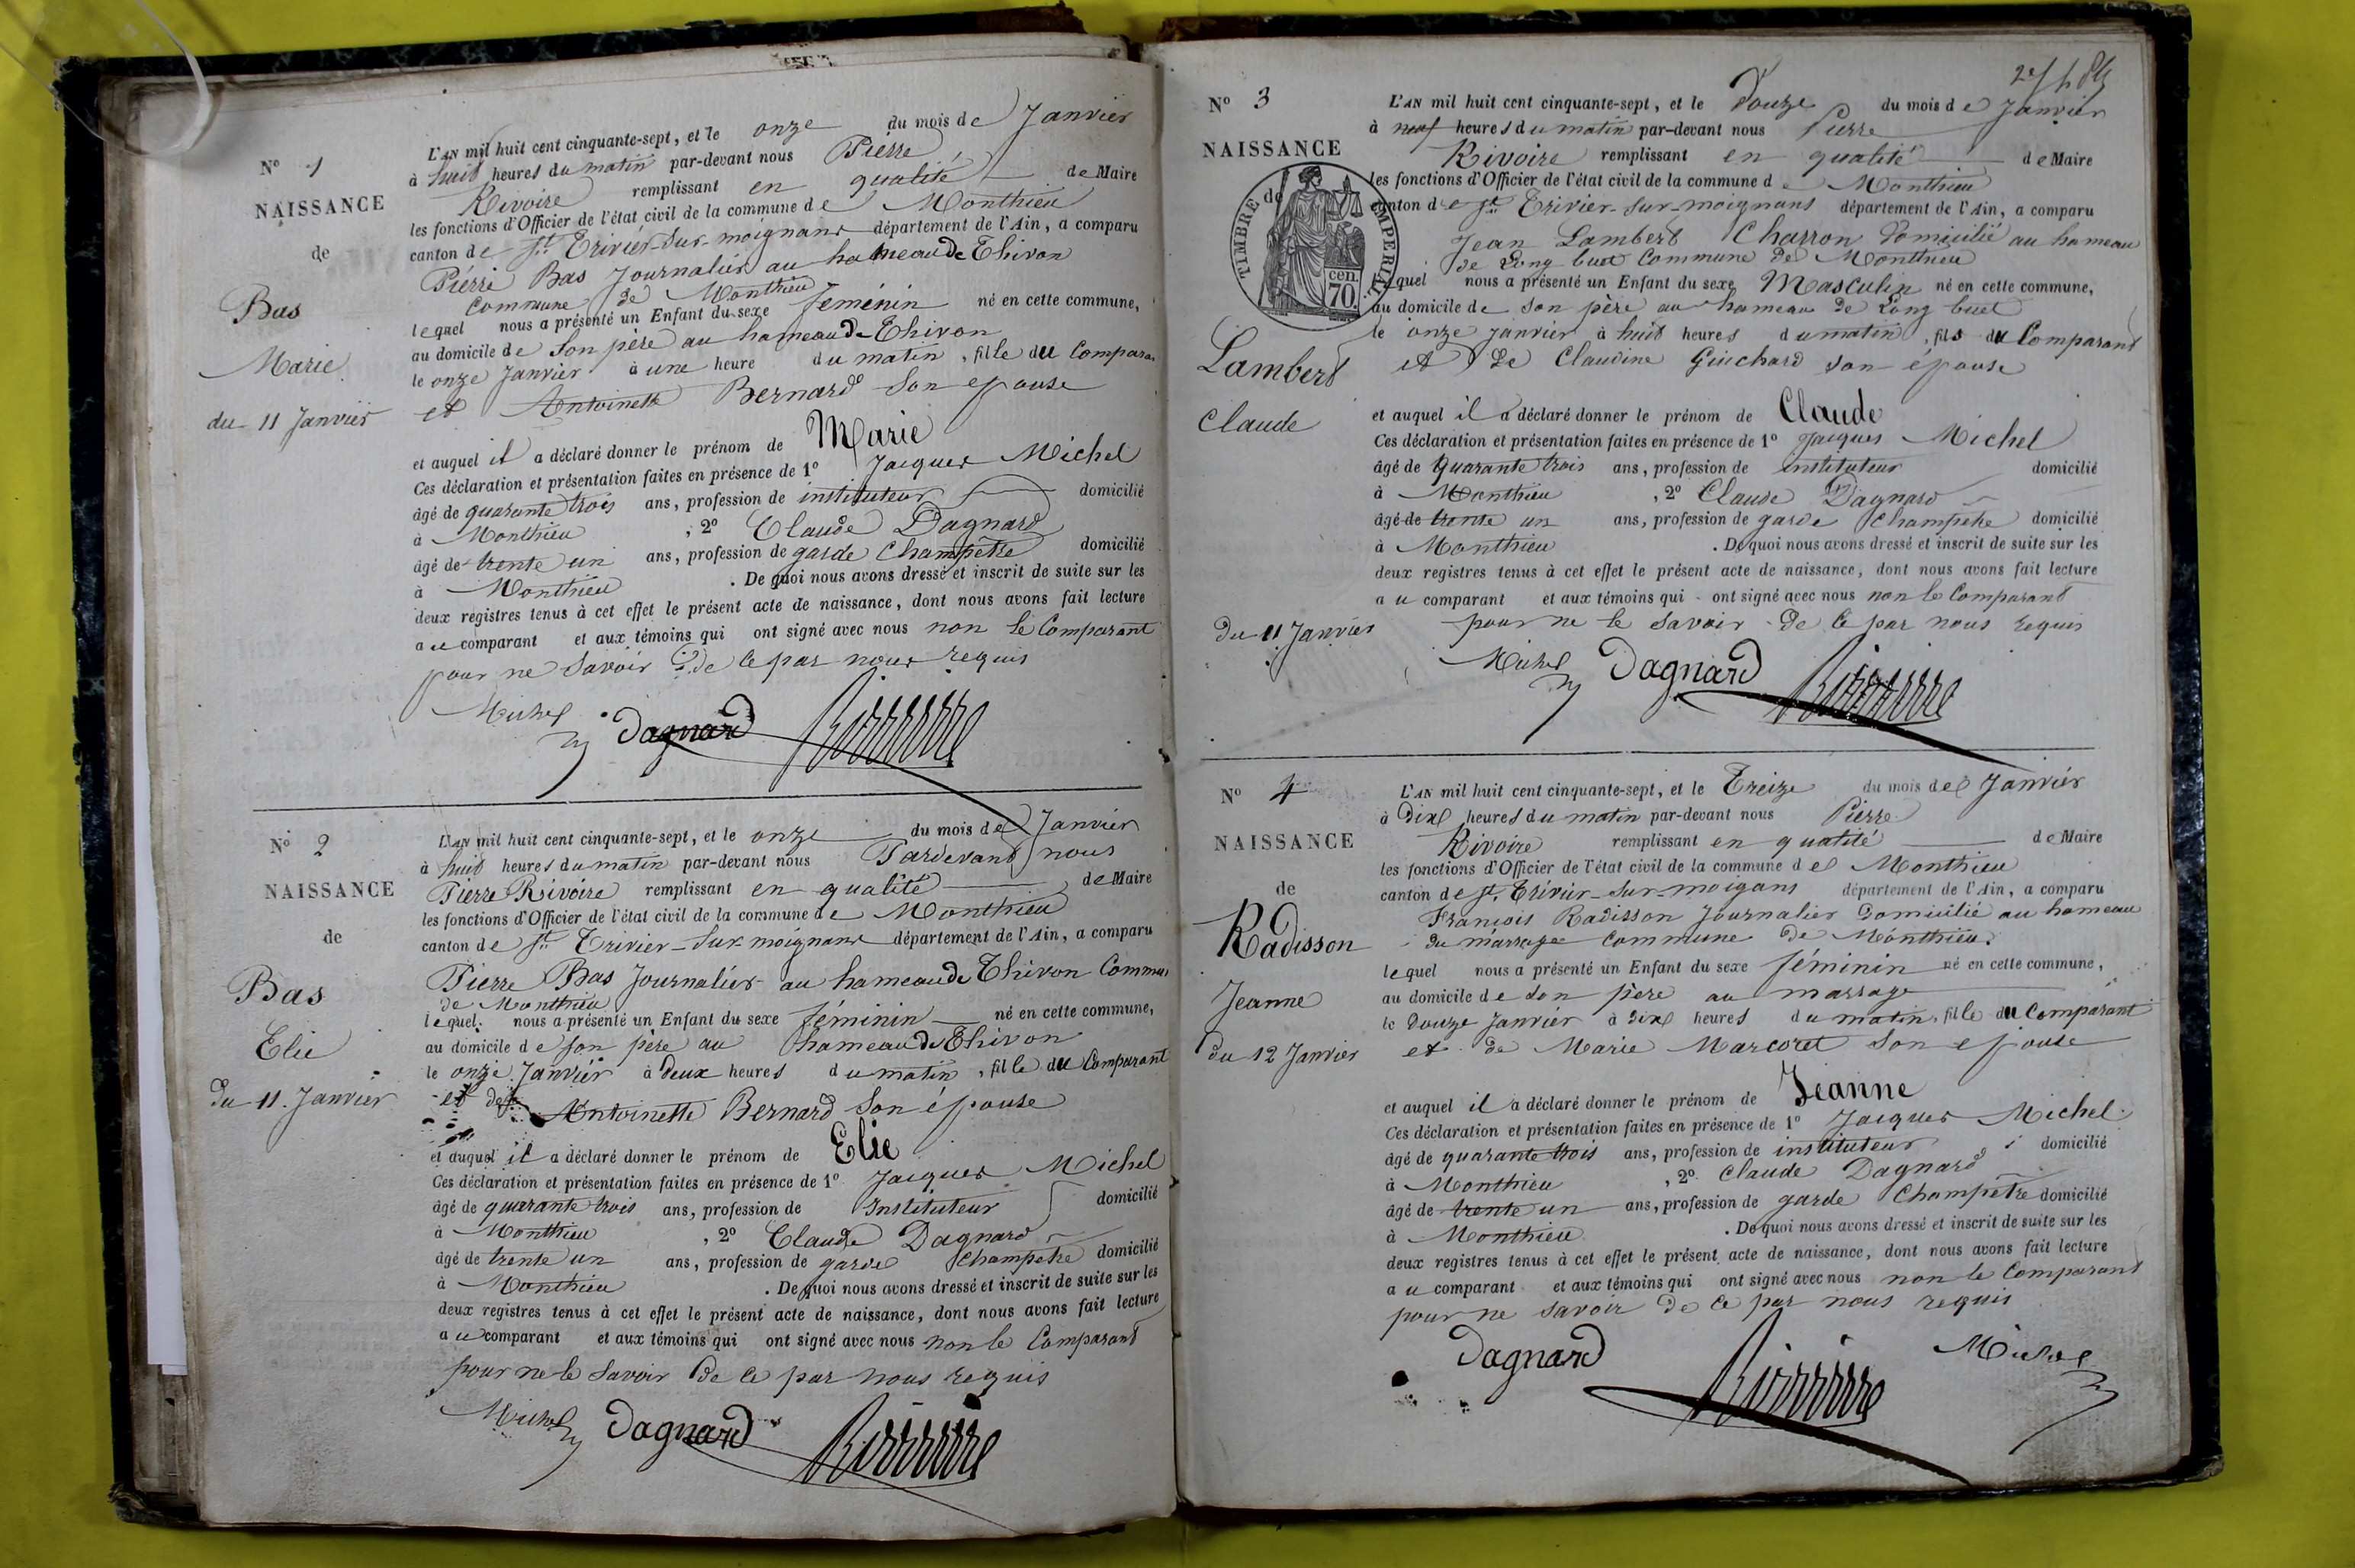 N° 1
NAISSANCE
de
Bas
Marie
du 11 Janvier
L'AN mil huit cent cinquante-sept, et le onze du mois de Janvier
à huit heures du matin par-devant nous Pierre
Rivoire remplissant en qualité de Maire
les fonctions d'Officier de l'état civil de la commune de Monthieu
canton de St Trivier-sur-moignans département de l'Ain, a comparu
Pierre Bas Journalier au hameau de Thivon
Commune de Monthieu
lequel nous a présenté un Enfant du sexe feménin né en cette commune,
au domicile de son père au hameau de Thivon
le onze Janvier à une heure du matin, fille du Compara
et Antoinette Bernard son épouse
et auquel il a déclaré donner le prénom de Marie
Ces déclaration et présentation faites en présence de 1° Jacques Michel
âgé de quarante trois ans, profession de instituteur domicilié
à Monthieu , 2° Claude Dagnard
âgé de trente un ans, profession de garde Champêtre domicilié
à Monthieu . De quoi nous avons dressé et inscrit de suite sur les
deux registres tenus à cet effet le présent acte de naissance, dont nous avons fait lecture
au comparant et aux témoins qui ont signé avec nous non le Comparant
pour ne savoir de ce par nous requis
Michel Dagnard Rivoire
N° 2
NAISSANCE
de
Bas
Elie
du 11 Janvier
L'AN mil huit cent cinquante-sept, et le onze du mois de Janvier
à huit heures du matin par-devant nous Pardevant nous
Pierre Rivoire remplissant en qualité de Maire
les fonctions d'Officier de l'état civil de la commune de Monthieu
canton de St Trivier-sur-moignans département de l'Ain, a comparu
Pierre Bas Journalier au hameau de Thivon Commun
de Monthieu
lequel nous a présenté un Enfant du sexe féminin né en cette commune,
au domicile de son père au hameau de Thivon
le onze Janvier à deux heures du matin, fille du Comparant
et de Antoinette Bernard son épouse
et auquel il a déclaré donner le prénom de Elie
Ces déclaration et présentation faites en présence de 1° Jacques Michel
âgé de quarante trois ans, profession de Instituteur domicilié
à Monthieu , 2° Claude Dagnard
âgé de trente un ans, profession de garde Champêtre domicilié
à Monthieu . De quoi nous avons dressé et inscrit de suite sur les
deux registres tenus à cet effet le présent acte de naissance, dont nous avons fait lecture
au comparant et aux témoins qui ont signé avec nous non le Comparant
pour ne le savoir de ce par nous requis
Michel Dagnard Rivoire
N° 3
NAISSANCE
de
TIMBRE IMPERIAL
cen.
70.
Lambert
Claude
Du 11 Janvier
L'AN mil huit cent cinquante-sept, et le Douze du mois de Janvier
à neuf heures du matin par-devant nous Pierre
Rivoire remplissant en qualité de Maire
les fonctions d'Officier de l'état civil de la commune de Monthieu
canton de St Trivier-sur-moignans département de l'Ain, a comparu
Jean Lambert Charron domicilié au hameau
de Long buet Commune de Monthieu
lequel nous a présenté un Enfant du sexe Masculin né en cette commune,
au domicile de son père au hameau de Long buet
le onze Janvier à huit heures du matin, fils du Comparant
et de Claudine Guichard son épouse
et auquel il a déclaré donner le prénom de Claude
Ces déclaration et présentation faites en présence de 1° Jacques Michel
âgé de Quarante trois ans, profession de instituteur domicilié
à Monthieu , 2° Claude Dagnard
âgé de trente un ans, profession de garde Champêtre domicilié
à Monthieu . De quoi nous avons dressé et inscrit de suite sur les
deux registres tenus à cet effet le présent acte de naissance, dont nous avons fait lecture
au comparant et aux témoins qui ont signé avec nous non le Comparant
pour ne le savoir de ce par nous requis
Michel Dagnard Rivoire
N° 4
NAISSANCE
de
Radisson
Jeanne
du 12 Janvier
L'AN mil huit cent cinquante-sept, et le Treize du mois de Janvier
à Dix heures du matin par-devant nous Pierre
Rivoire remplissant en qualité de Maire
les fonctions d'Officier de l'état civil de la commune de Monthieu
canton de St. Trivier-sur-moigans département de l'Ain, a comparu
François Radisson Journalier Domicilié au hameau
du marsage Commune de Monthieu.
lequel nous a présenté un Enfant du sexe féminin né en cette commune,
au domicile de son père au marsage
le Douze Janvier à dix heures du matin, fille du Comparant
et de Marie Marcoret son épouse
et auquel il a déclaré donner le prénom de Jeanne
Ces déclaration et présentation faites en présence de 1° Jacques Michel
âgé de quarante trois ans, profession de instituteur domicilié
à Monthieu , 2° Claude Dagnard
âgé de trente un ans, profession de garde Champêtre domicilié
à Monthieu . De quoi nous avons dressé et inscrit de suite sur les
deux registres tenus à cet effet le présent acte de naissance, dont nous avons fait lecture
au comparant et aux témoins qui ont signé avec nous non le Comparant
pour ne savoir de ce par nous requis
Dagnard Rivoire Michel